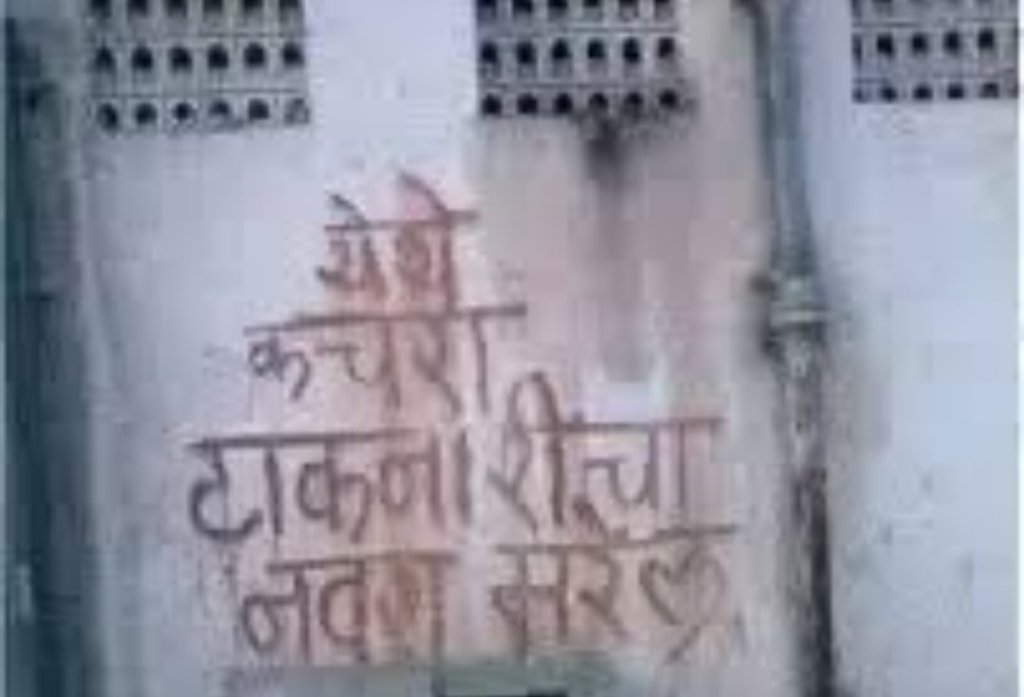 येथे
कचरा
टाकनारीचा
नवरा मरेल